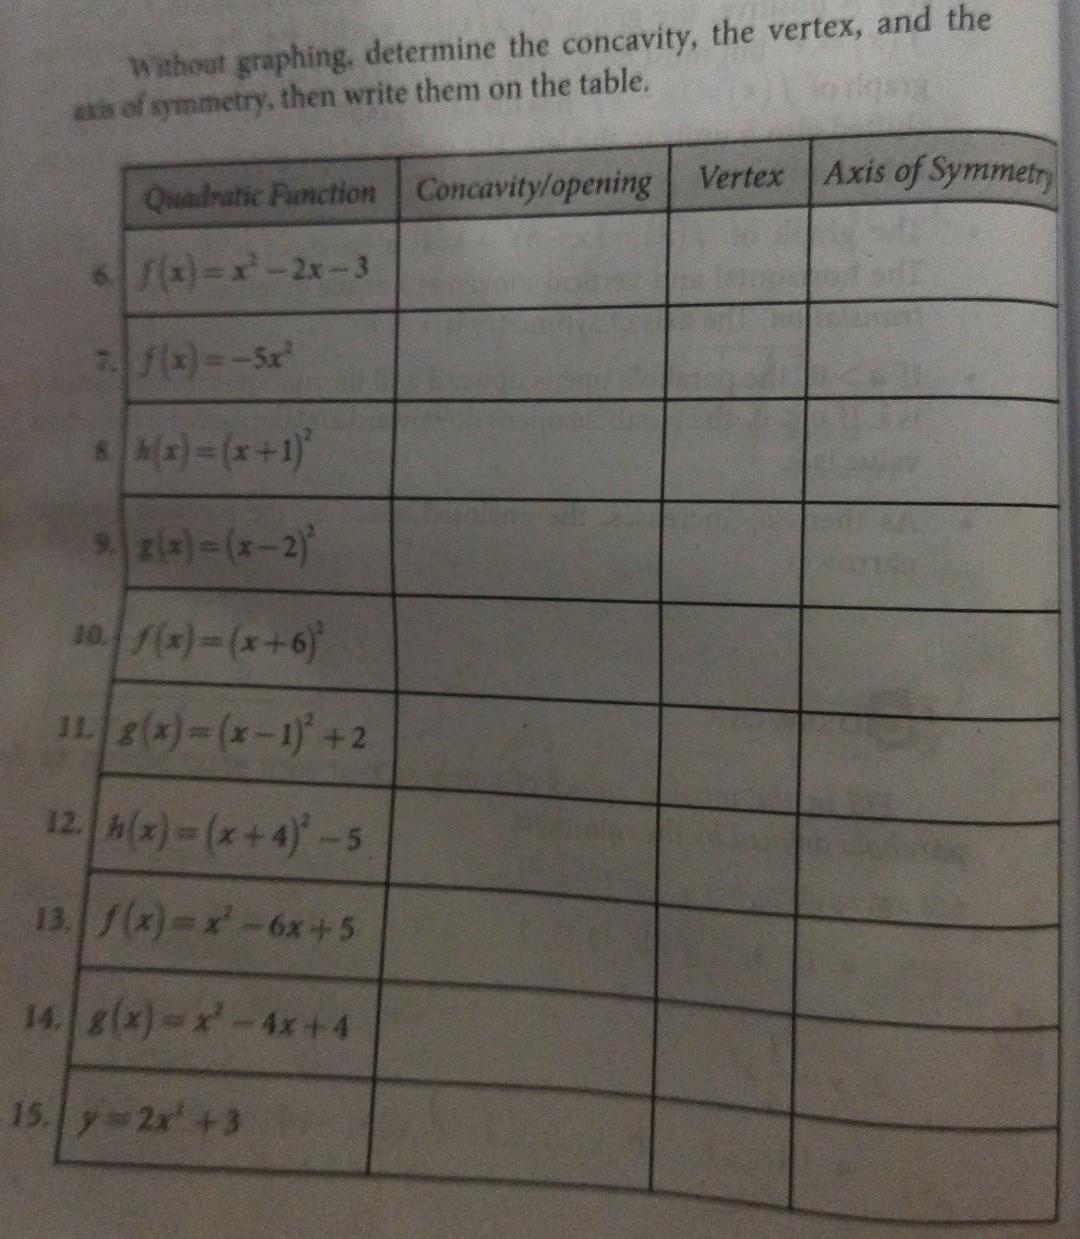 Without graphing, determine the concavity, the vertex, and the
axis of symmetry, then write them on the table.
Quadratic Function Concavity/opening Vertex Axis of Symmetry
6. f(x) = x² – 2x – 3
7. f(x) = –5x²
8. h(x) = (x + 1)²
9. g(x) = (x – 2)²
10. f(x) = (x + 6)²
11. g(x) = (x – 1)² + 2
12. h(x) = (x + 4)² – 5
13. f(x) = x² – 6x + 5
14. g(x) = x² – 4x + 4
15. y = 2x² + 3